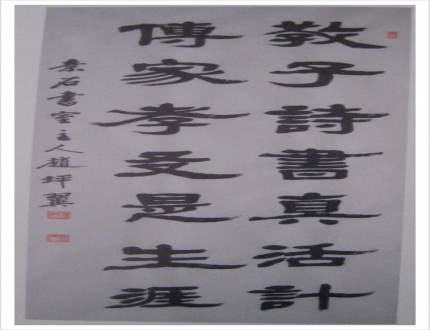 教子詩書真活計
傳家孝友是生涯
石書室主人趙坪翼